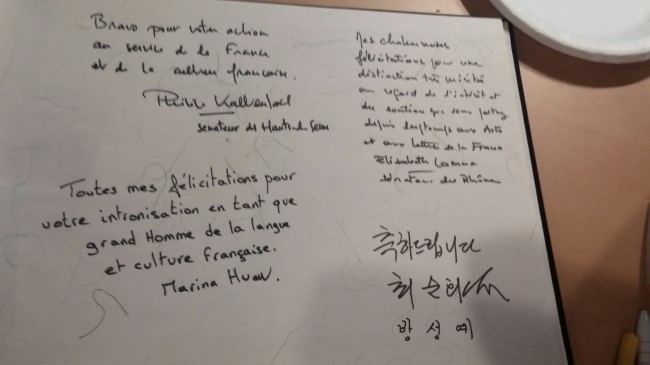 Bravo pour votre action
au service de la France
et de la culture française.
Philippe Kaltenbach
Sénateur des Hauts de Seine
Toutes mes félicitations pour
votre intronisation en tant que
grand Homme de la langue
et culture française.
Marina
Mes chaleureuses
félicitations pour une
distinction très méritée
au regard de l'intérêt et
du soutien que vous portez
depuis longtemps aux Arts
et aux lettres de la France
Elisabeth
Sénateur du Rhône
축하드립니다
최
방 성 예